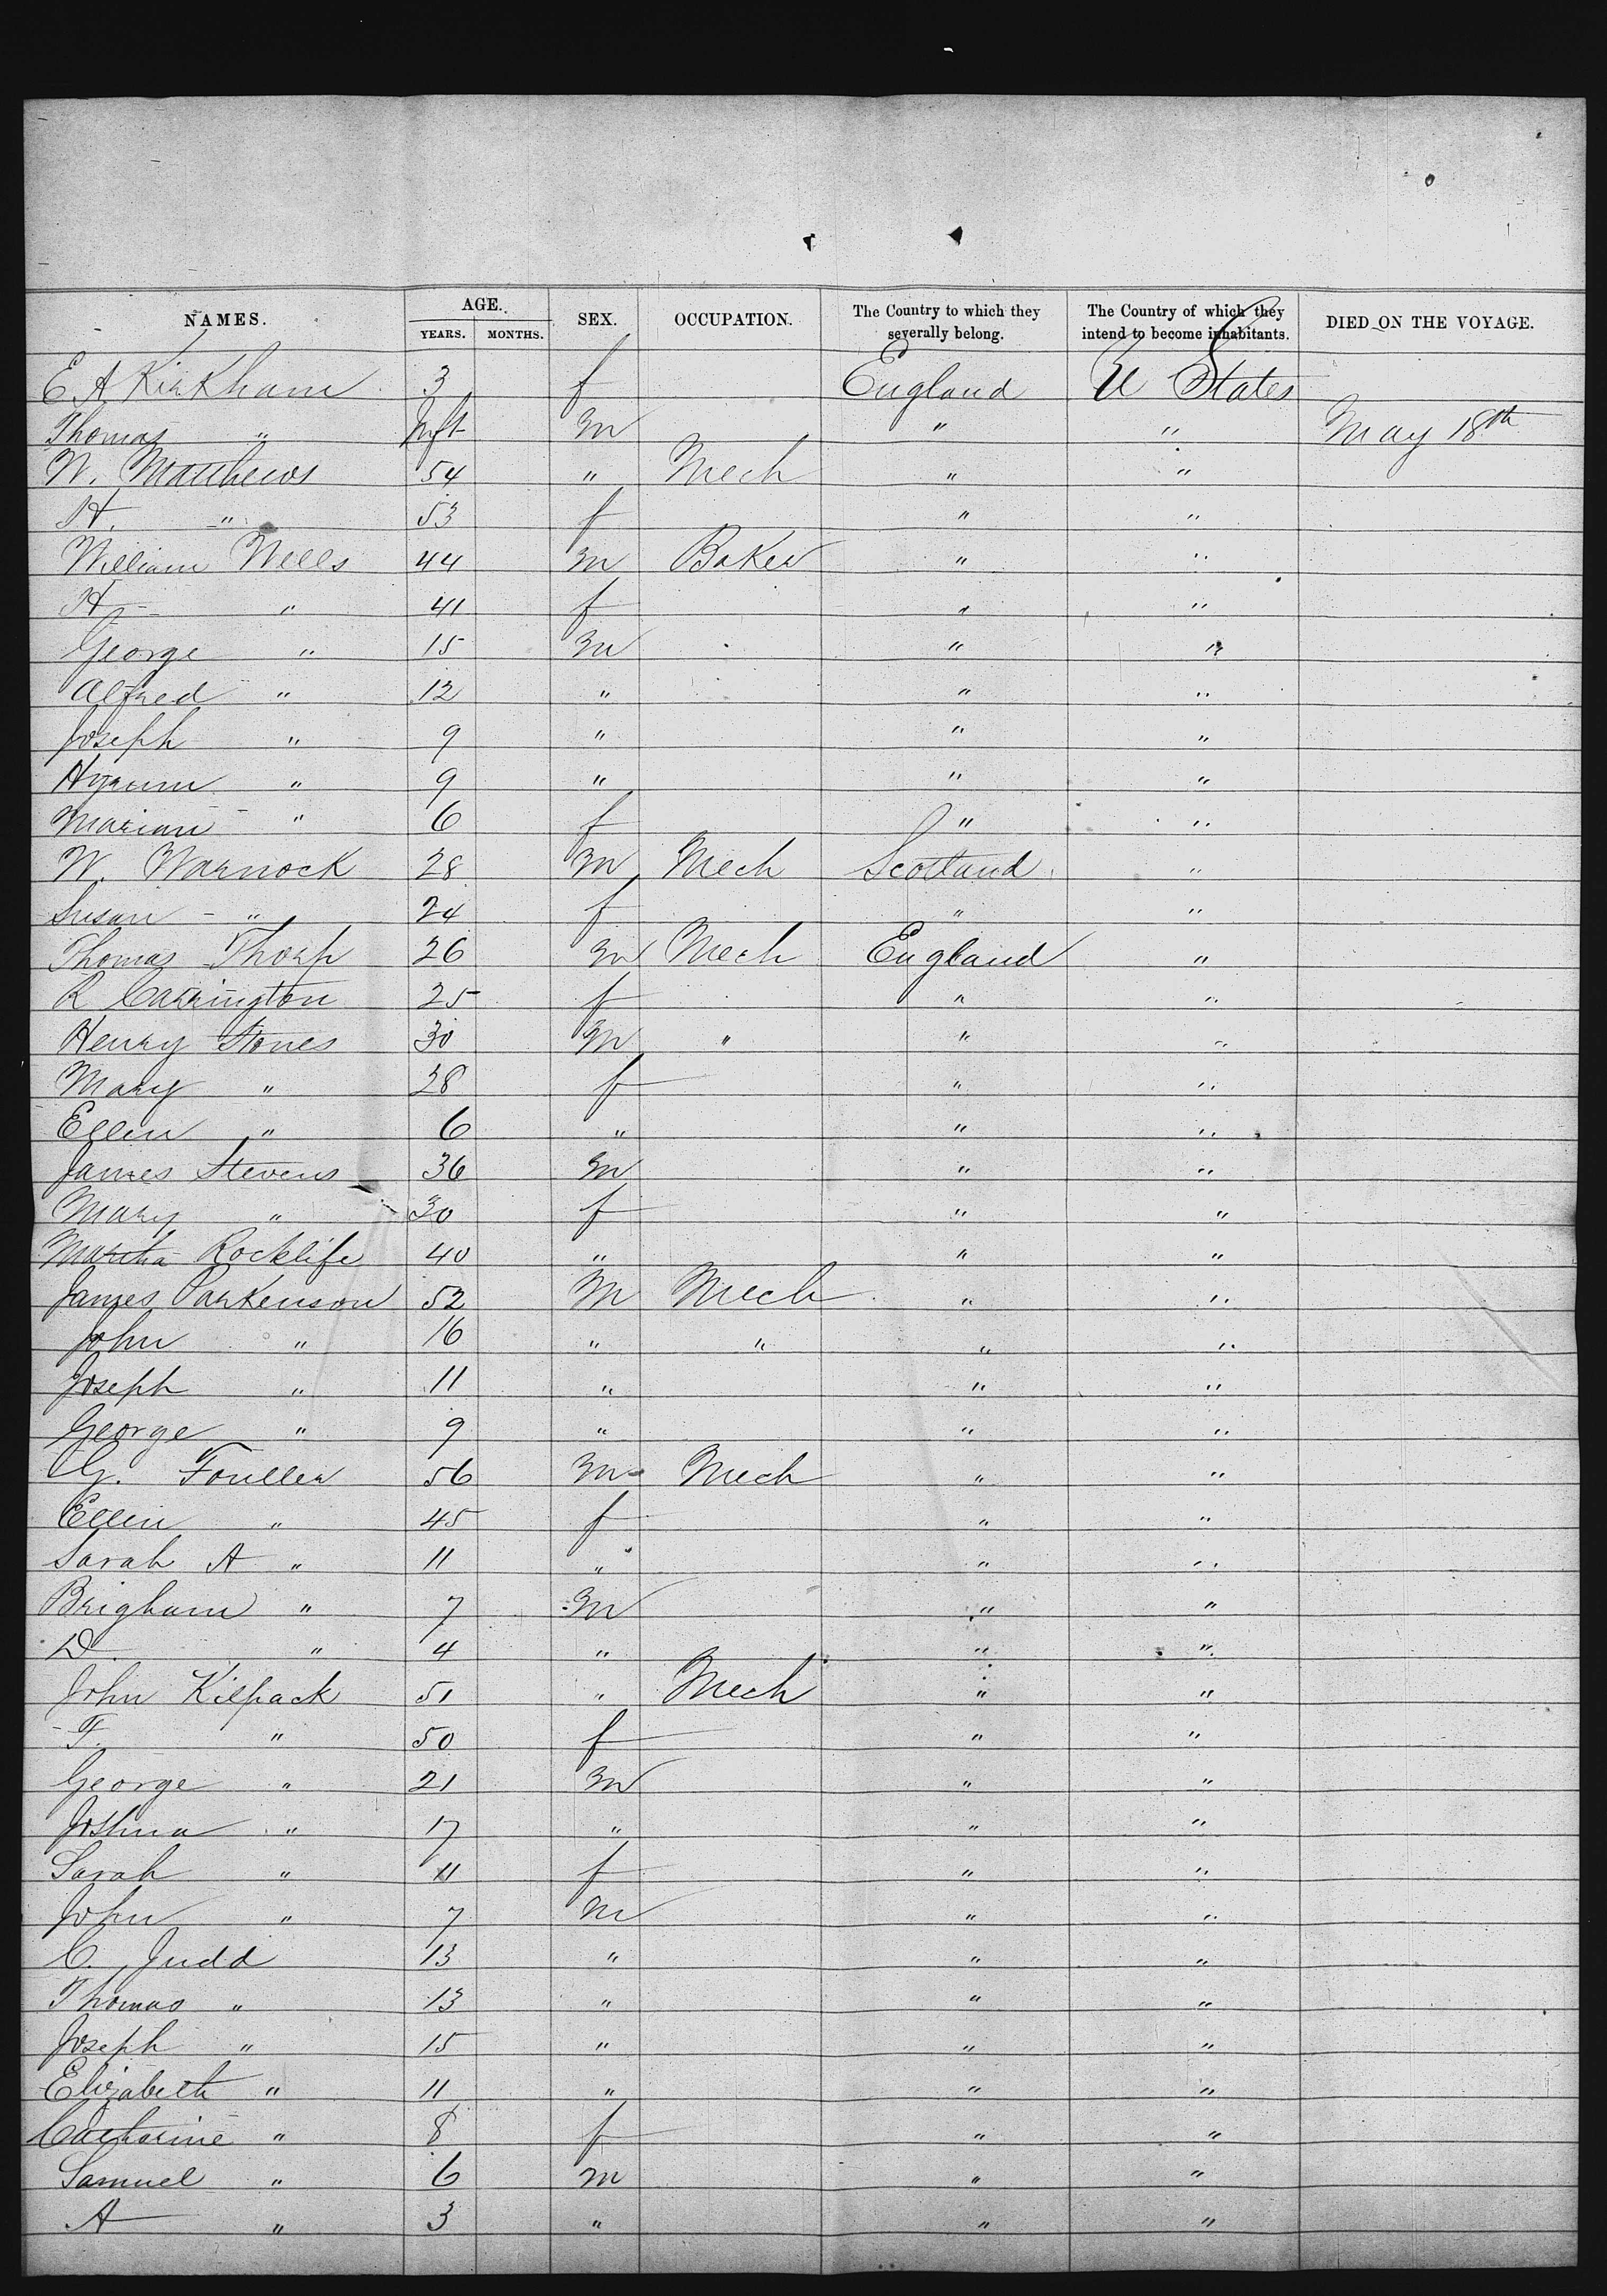 NAMES. AGE. SEX. OCCUPATION. The Country to which they severally belong. The Country of which they intend to become inhabitants. DIED ON THE VOYAGE.
YEARS. MONTHS.
E A Kirkham 3 f England U States
Thomas " Inft m " " May 18th
W. Matthews 54 " Mech " "
H. " 53 f " "
William Wells 44 m Baker " "
H " 41 f " "
George " 15 m " "
Alfred " 12 " " "
Joseph " 9 " " "
Hyrum " 9 " " "
Marian " 6 f " "
W. Warnock 28 m Mech Scotland "
Susan " 24 f " "
Thomas Thorp 26 m Mech England "
R Carrington 25 f " "
Henry Stones 30 m " " "
Mary " 28 f " "
Ellen " 6 " " "
James Stevens 36 m " "
Mary " 30 f " "
Martha Rocklife 40 " " "
James Parkenson 52 m Mech " "
John " 16 " " " "
Joseph " 11 " " "
George " 9 " " "
G. Fouller 56 m Mech " "
Ellen " 45 f " "
Sarah A " 11 " " "
Brigham " 7 m " "
D " 4 " " "
John Kilpack 51 " Mech " "
F. " 50 f " "
George " 21 m " "
Joshua " 17 " " "
Sarah " 11 f " "
John " 7 m " "
C. Judd 13 " " "
Thomas " 13 " " "
Joseph " 15 " " "
Elizabeth " 11 " " "
Catharine " 8 f " "
Samuel " 6 m " "
A " 3 " " "